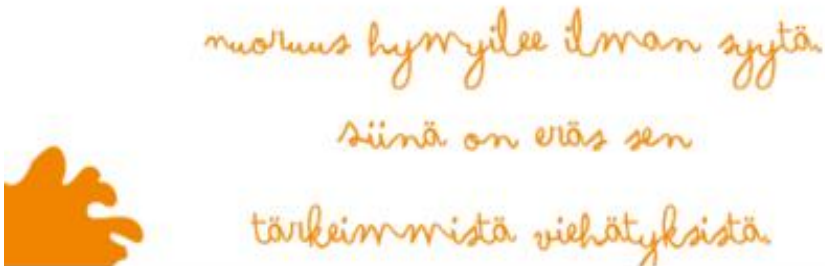 nuoruus hymyilee ilman syytä.
siinä on eräs sen
tärkeimmistä viehätyksistä.